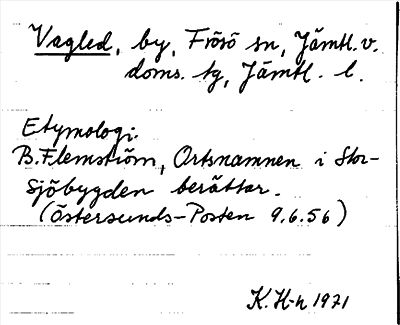 Vagled, by, Frösö sn, Jämtl. v.
doms. tg, Jämtl. l.
Etymologi.
B. Flemström, Ortsnamnen i Stor-
sjöbygden berättar.
(Östersunds-Posten 9.6.56)
K. H-n 1971